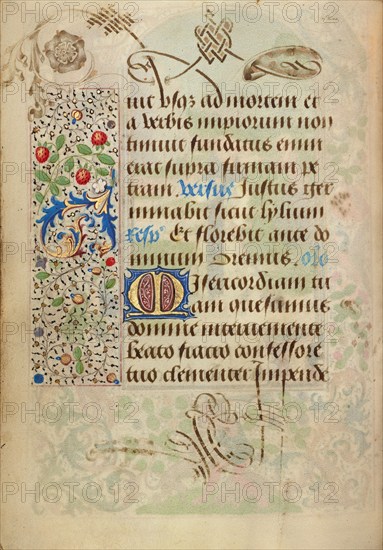 uit usq3 ad mortem et
a verbis impiorum non
timuit fundatus enim
erat supra firmam pe
tram Versus Justus ger
minabit sicut lylium
Resp Et florebit ante do
minum Oremus. olo
Misericordiam tu
am quesumus
domine interueniente
beato fiacro confessore
tuo clementer Impende
PHOTO12